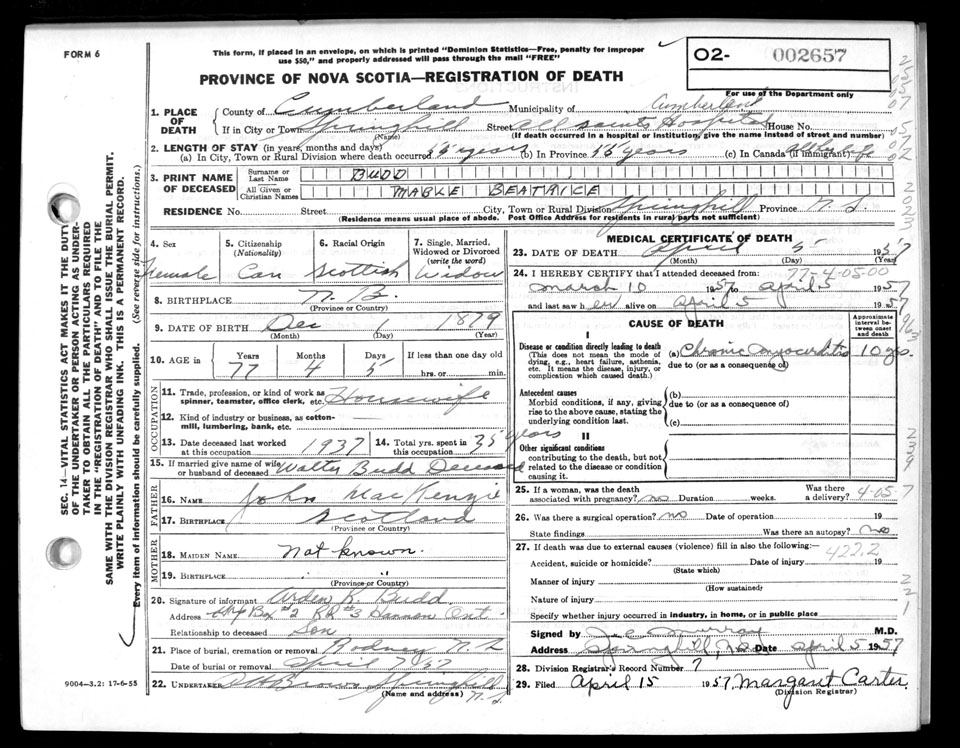 FORM 6
This form, if placed in an envelope, on which is printed "Dominion Statistics—Free, penalty for improper
use $50," and properly addressed will pass through the mail "FREE"
O2- 002657
For use of the Department only
PROVINCE OF NOVA SCOTIA—REGISTRATION OF DEATH
1. PLACE OF DEATH County of Cumberland Municipality of Cumberland
If in City or Town Springhill Street All Saints Hospital House No.
(Name) (If death occurred in a hospital or institution, give the name instead of street and number)
2. LENGTH OF STAY (in years, months and days)
(a) In City, Town or Rural Division where death occurred years (b) In Province years (c) In Canada (if immigrant) All her life
3. PRINT NAME OF DECEASED Surname or Last Name BUDD
All Given or Christian Names MABLE BEATRICE
RESIDENCE No. Street City, Town or Rural Division Springhill Province N. S.
(Residence means usual place of abode. Post Office Address for residents in rural parts not sufficient)
4. Sex Female
5. Citizenship (Nationality) Can
6. Racial Origin Scottish
7. Single, Married, Widowed or Divorced (write the word) Widow
8. BIRTHPLACE N. B.
(Province or Country)
9. DATE OF BIRTH Dec 1 1879
(Month) (Day) (Year)
10. AGE in Years 77 Months 4 Days 5 If less than one day old
hrs. or min.
OCCUPATION
11. Trade, profession, or kind of work as spinner, teamster, office clerk, etc. Housewife
12. Kind of industry or business, as cotton-mill, lumbering, bank, etc.
13. Date deceased last worked at this occupation 1937
14. Total yrs. spent in this occupation 35 years
15. If married give name of wife or husband of deceased Walter Budd Deceased
FATHER
16. NAME John MacKenzie
17. BIRTHPLACE Scotland
(Province or Country)
MOTHER
18. MAIDEN NAME Not known.
19. BIRTHPLACE " "
(Province or Country)
20. Signature of informant Arden K. Budd
Address Box #2 RR #3 Hannon Ont
Relationship to deceased Son
21. Place of burial, cremation or removal Rodney N. S.
Date of burial or removal April 7/57
22. UNDERTAKER Brown Springhill N. S.
(Name and address)
9004—3.2: 17-6-55
MEDICAL CERTIFICATE OF DEATH
23. DATE OF DEATH April 5 1957
(Month) (Day) (Year)
77-4-05-00
24. I HEREBY CERTIFY that I attended deceased from:
March 10 1957 to April 5 1957
and last saw her alive on April 5 1957
CAUSE OF DEATH
Approximate interval between onset and death
I
Disease or condition directly leading to death
(This does not mean the mode of dying, e.g., heart failure, asthenia, etc. It means the disease, injury, or complication which caused death.)
(a) Chronic Myocarditis 10 yrs.
due to (or as a consequence of)
Antecedent causes
Morbid conditions, if any, giving rise to the above cause, stating the underlying condition last.
(b)
due to (or as a consequence of)
(c)
II
Other significant conditions
contributing to the death, but not related to the disease or condition causing it.
25. If a woman, was the death associated with pregnancy? no Duration weeks. Was there a delivery?
4-05-7
26. Was there a surgical operation? no Date of operation 19
State findings Was there an autopsy? no
27. If death was due to external causes (violence) fill in also the following:—
422.2
Accident, suicide or homicide? Date of injury 19
(State which)
Manner of injury
(How sustained)
Nature of injury
Specify whether injury occurred in industry, in home, or in public place
Signed by Murray M.D.
Address Springhill, N.S. Date April 5 1957
28. Division Registrar's Record Number 7
29. Filed April 15 1957. Margaret Carter.
(Division Registrar)
SEC. 14—VITAL STATISTICS ACT MAKES IT THE DUTY
OF THE UNDERTAKER OR PERSON ACTING AS UNDER-
TAKER TO OBTAIN ALL THE PARTICULARS REQUIRED
IN THE "REGISTRATION OF DEATH" AND TO FILE THE
SAME WITH THE DIVISION REGISTRAR WHO SHALL ISSUE THE BURIAL PERMIT.
WRITE PLAINLY WITH UNFADING INK. THIS IS A PERMANENT RECORD.
Every item of information should be carefully supplied. (See reverse side for instructions.)